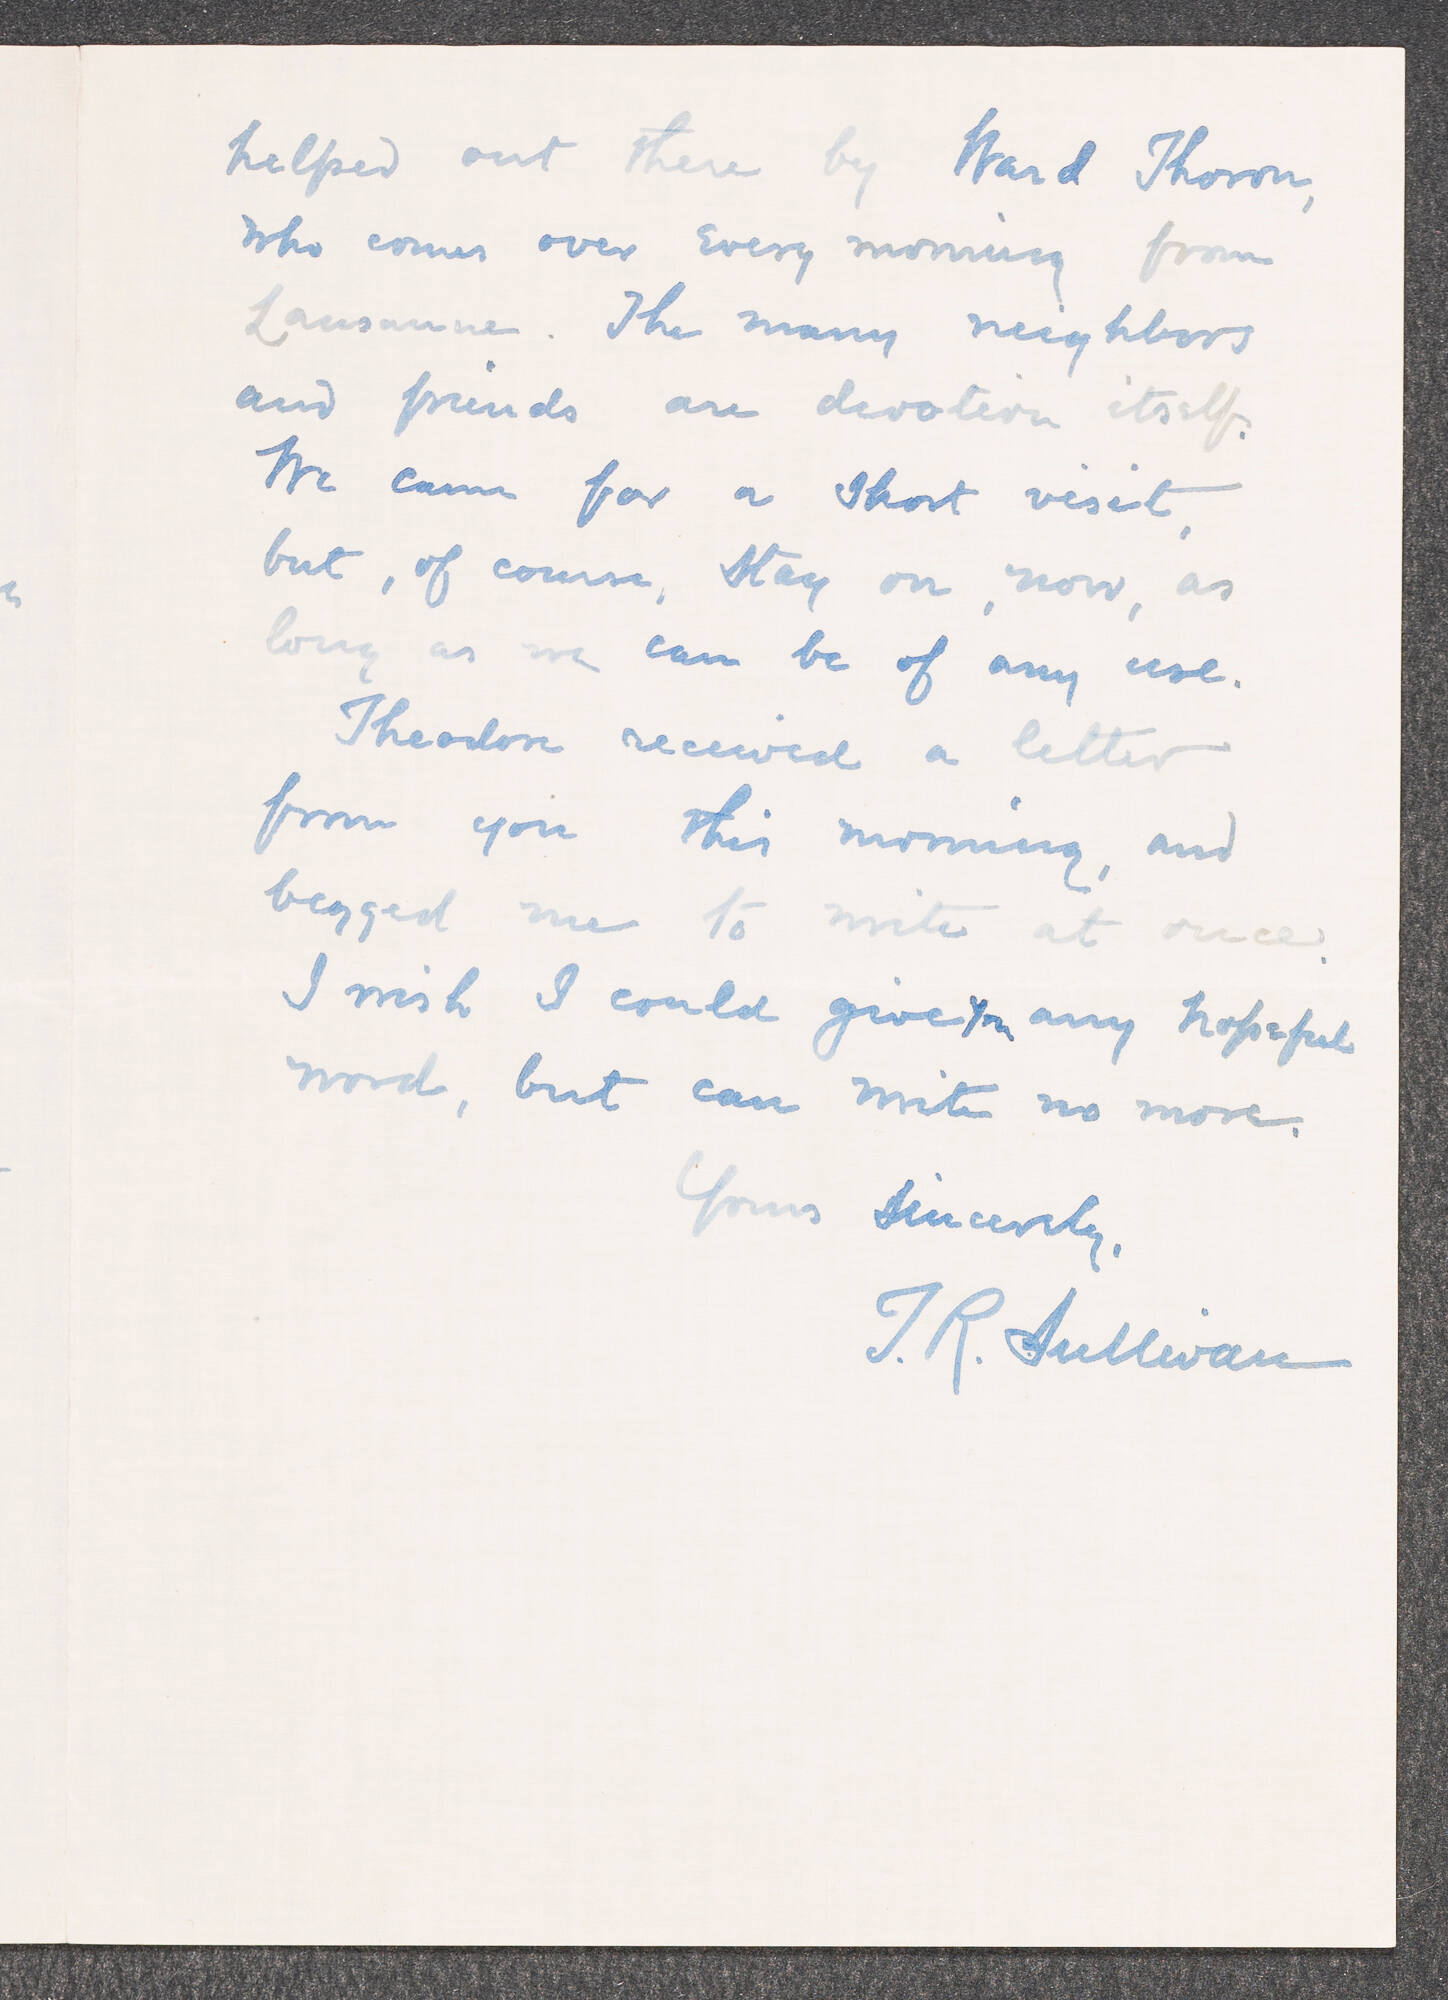 helped out there by Ward Thoron,
who comes over every morning from
Lausanne. The many neighbors
and friends are devotion itself.
We came for a short visit,
but, of course, stay on, now, as
long as we can be of any use.
Theodore received a letter
from you this morning, and
begged me to write at once.
I wish I could give you any hopeful
word, but can write no more.
Yours sincerely,
T. R. Sullivan